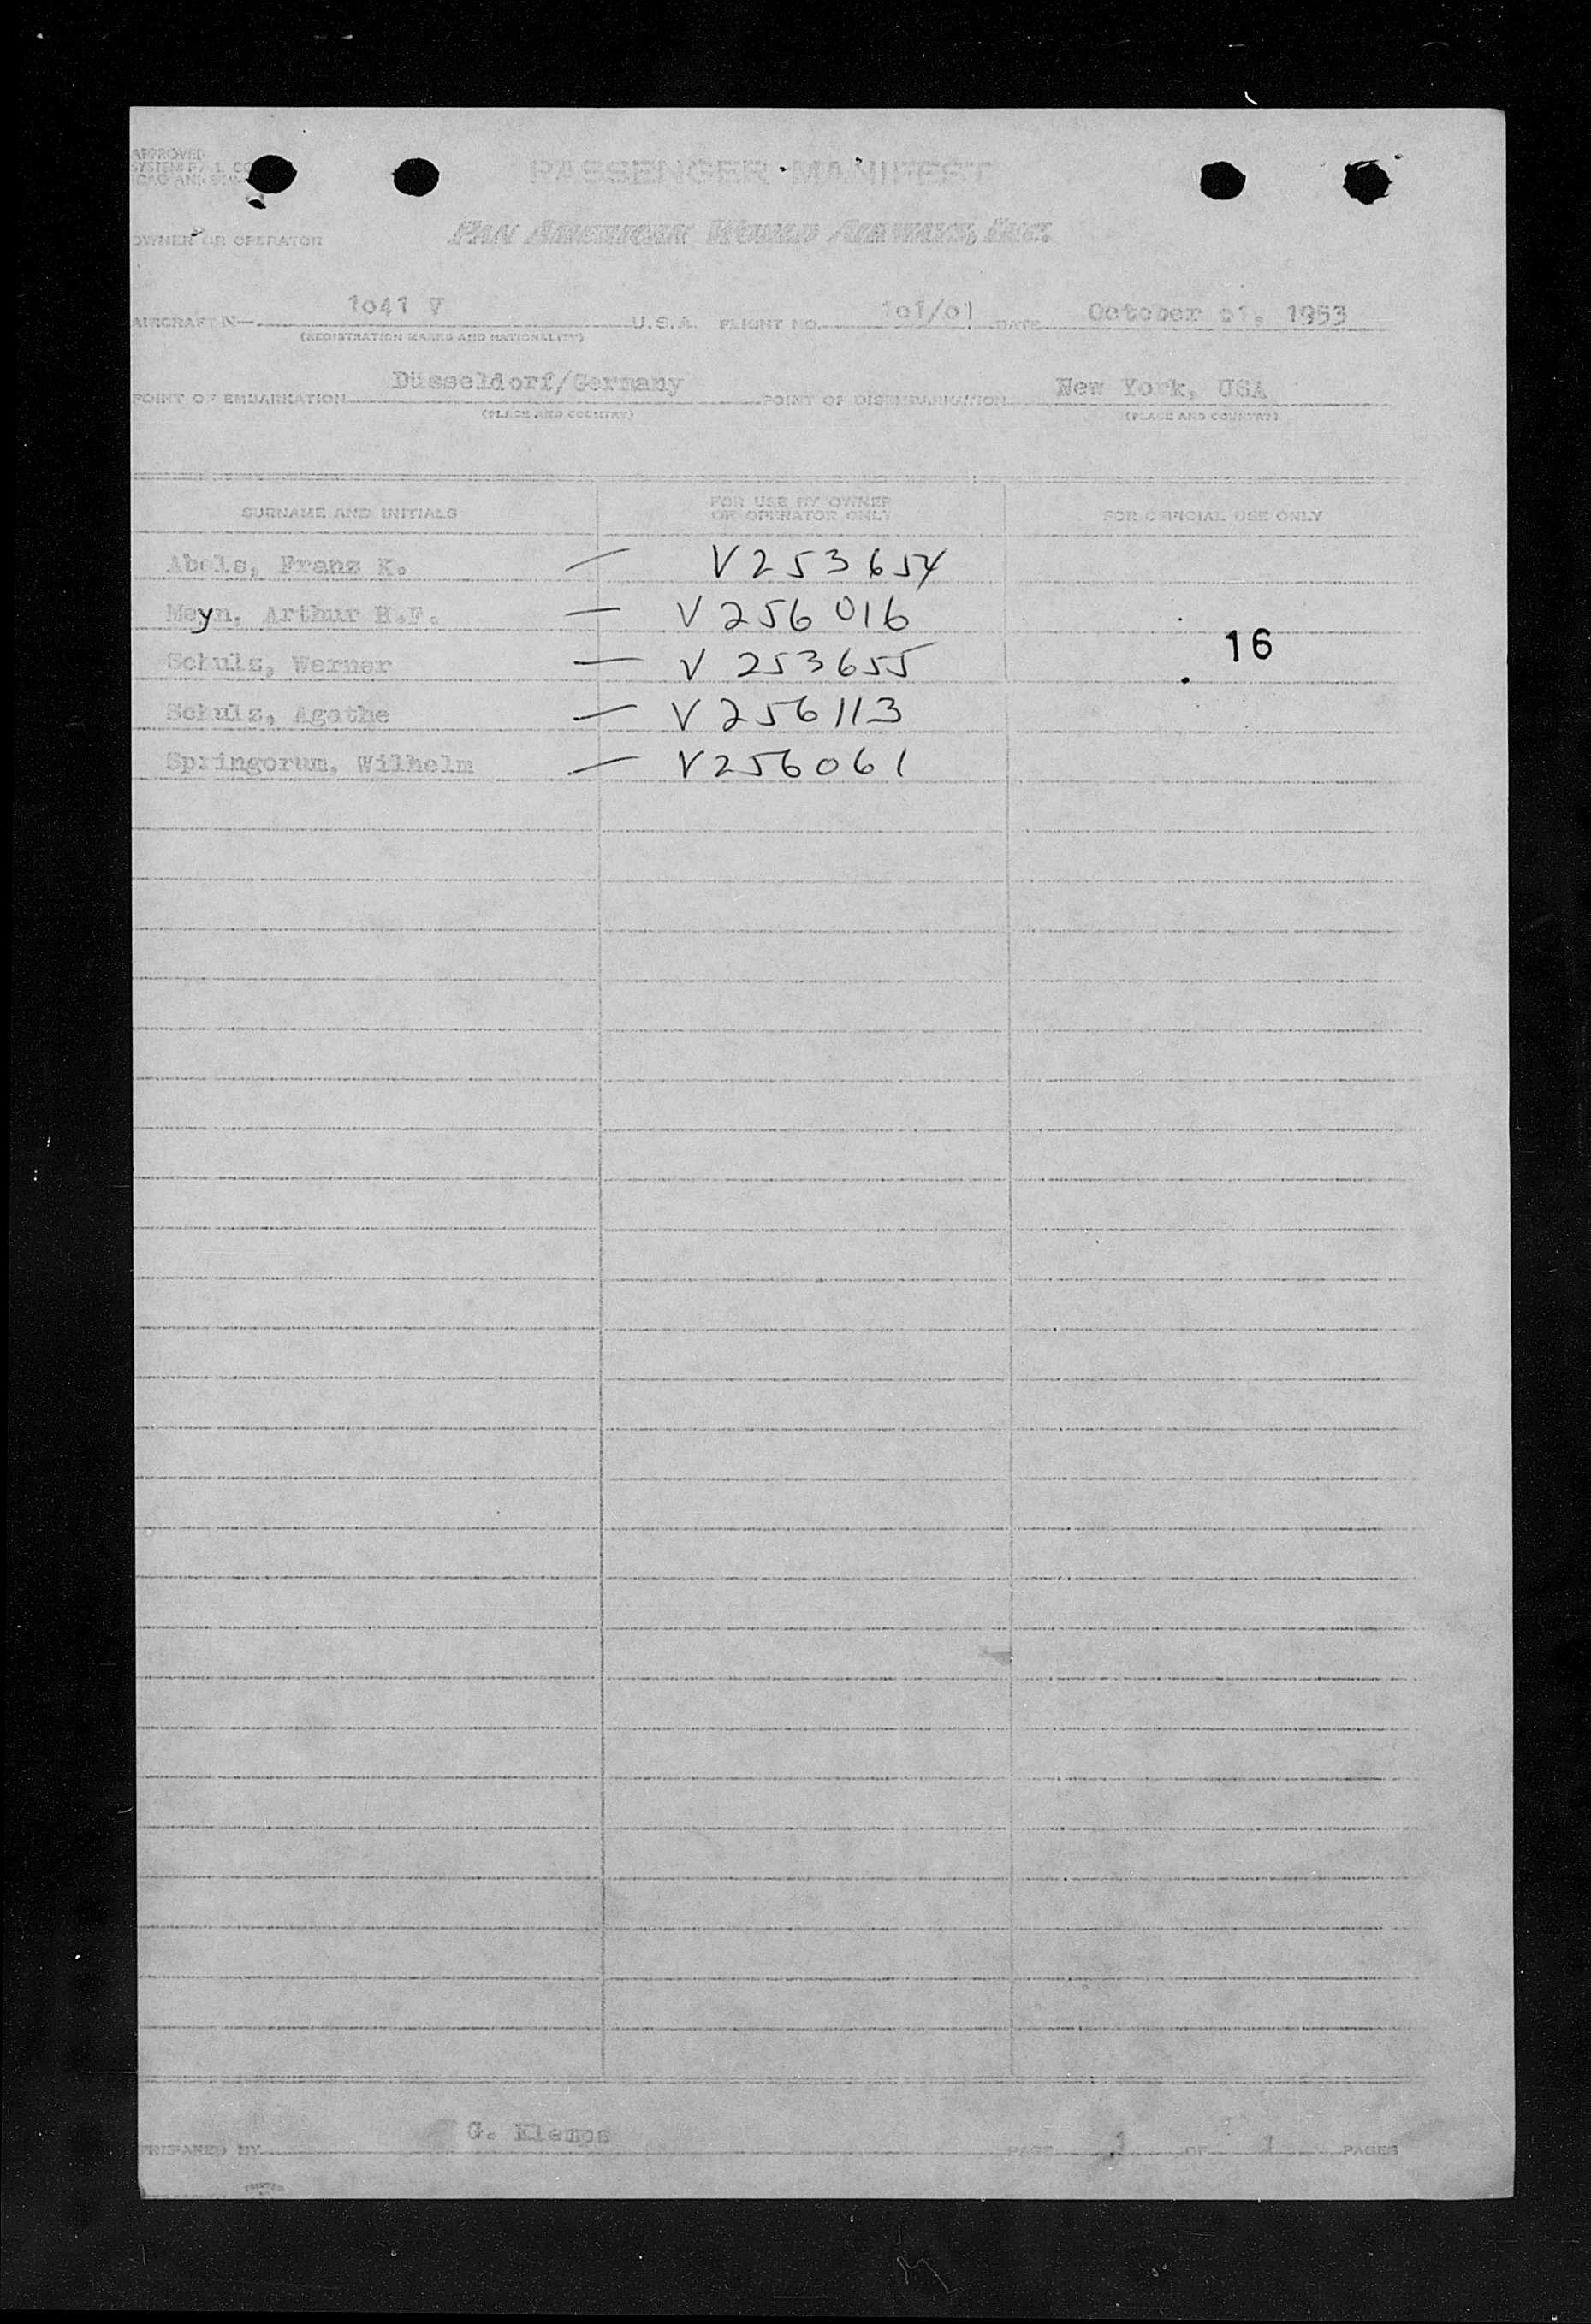 APPROVED
PASSENGER MANIFEST
OWNER OR OPERATOR PAN AMERICAN WORLD AIRWAYS, INC.
AIRCRAFT N— 1041 V U.S.A. FLIGHT NO. 101/01 DATE October 01, 1953
(REGISTRATION MARKS AND NATIONALITY)
POINT OF EMBARKATION Düsseldorf/Germany POINT OF DISEMBARKATION New York, USA
(PLACE AND COUNTRY) (PLACE AND COUNTRY)
SURNAME AND INITIALS FOR USE BY OWNER OR OPERATOR ONLY FOR OFFICIAL USE ONLY
Abels, Franz K. — V253654
Meyn, Arthur H.F. — V256016
16
Schulz, Werner — V 253655
Schulz, Agathe — V256113
Springorum, Wilhelm — V256061
PREPARED BY G. Klemps PAGE 1 OF 1 PAGES